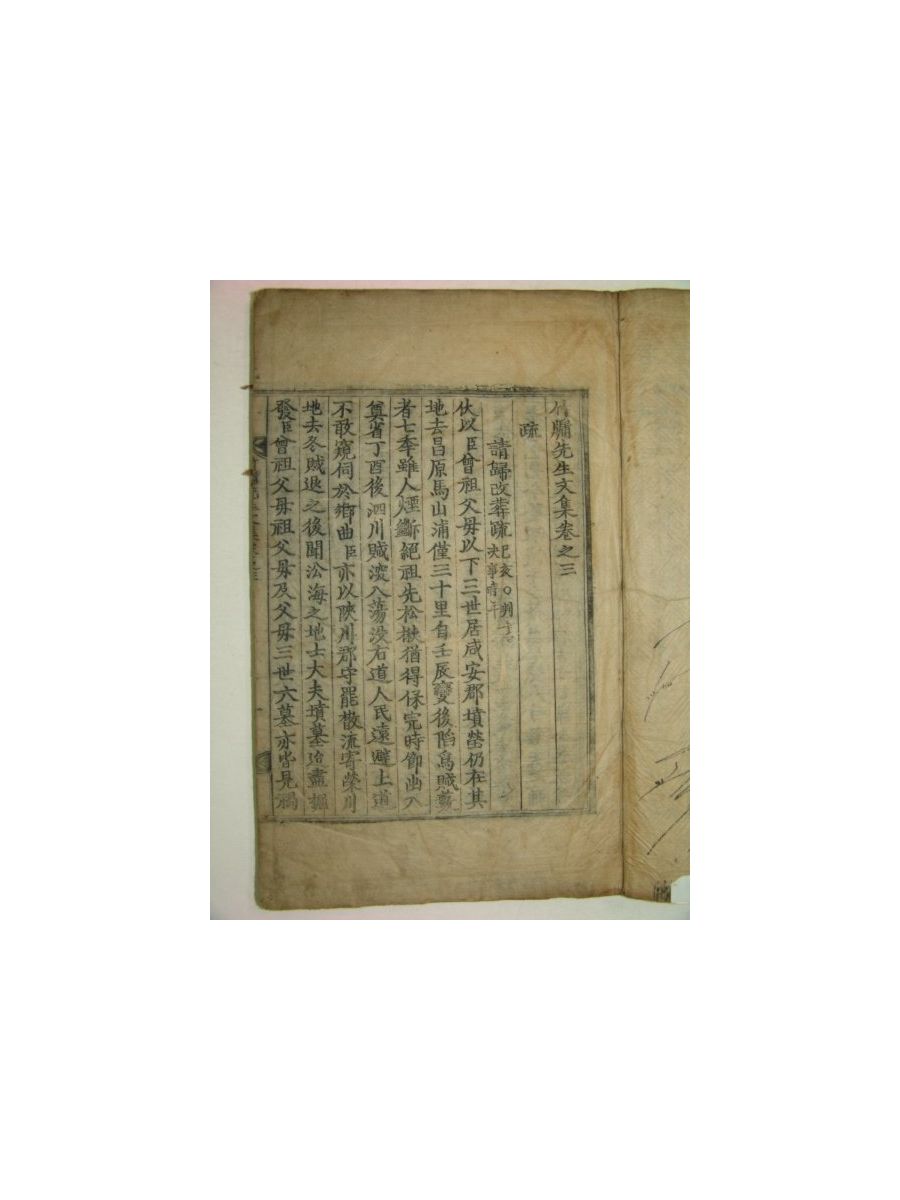 竹牖先生文集卷之三
疏
請歸改葬疏 己亥○明
決事時
伏以臣曾祖父母以下三世居咸安郡墳塋仍在其
地去昌原馬山浦僅三十里自壬辰變後陷爲賊藪
者七年雖人煙斷絕祖先松楸猶得保完時節幽入
奠省丁酉後泗川賊深入蕩沒右道人民遠避上道
不敢窺伺於鄕曲臣亦以陜川郡守罷散流寄榮川
地去冬賊退之後聞沿海之地士大夫墳墓迨盡掘
發臣曾祖父母祖父母及父母三世六墓亦皆見